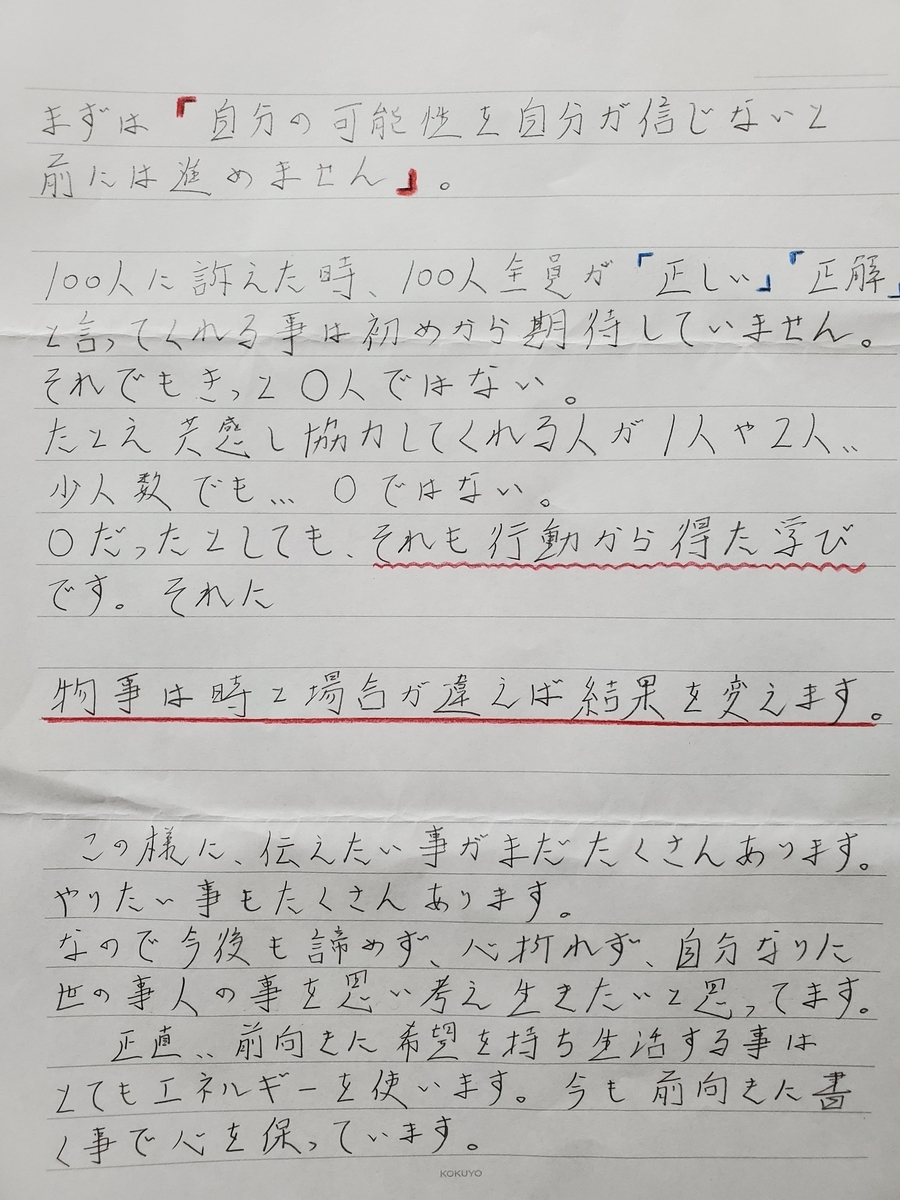 まずは「自分の可能性を自分が信じないと
前には進めません」。
100人に訴えた時、100人全員が「正しい」「正解」
と言ってくれる事は初めから期待していません。
それでもきっと〇人ではない。
たとえ共感し協力してくれる人が1人や2人‥
少人数でも… 〇ではない。
〇だったとしても、それも行動から得た学び
です。それに
物事は時と場合が違えば結果を変えます。
この様に、伝えたい事がまだたくさんあります。
やりたい事もたくさんあります。
なので今後も諦めず、心折れず、自分なりに
世の事人の事を思い考え生きたいと思ってます。
正直‥前向きに希望を持ち生活する事は
とてもエネルギーを使います。今も前向きに書
く事で心を保っています。
KOKUYO